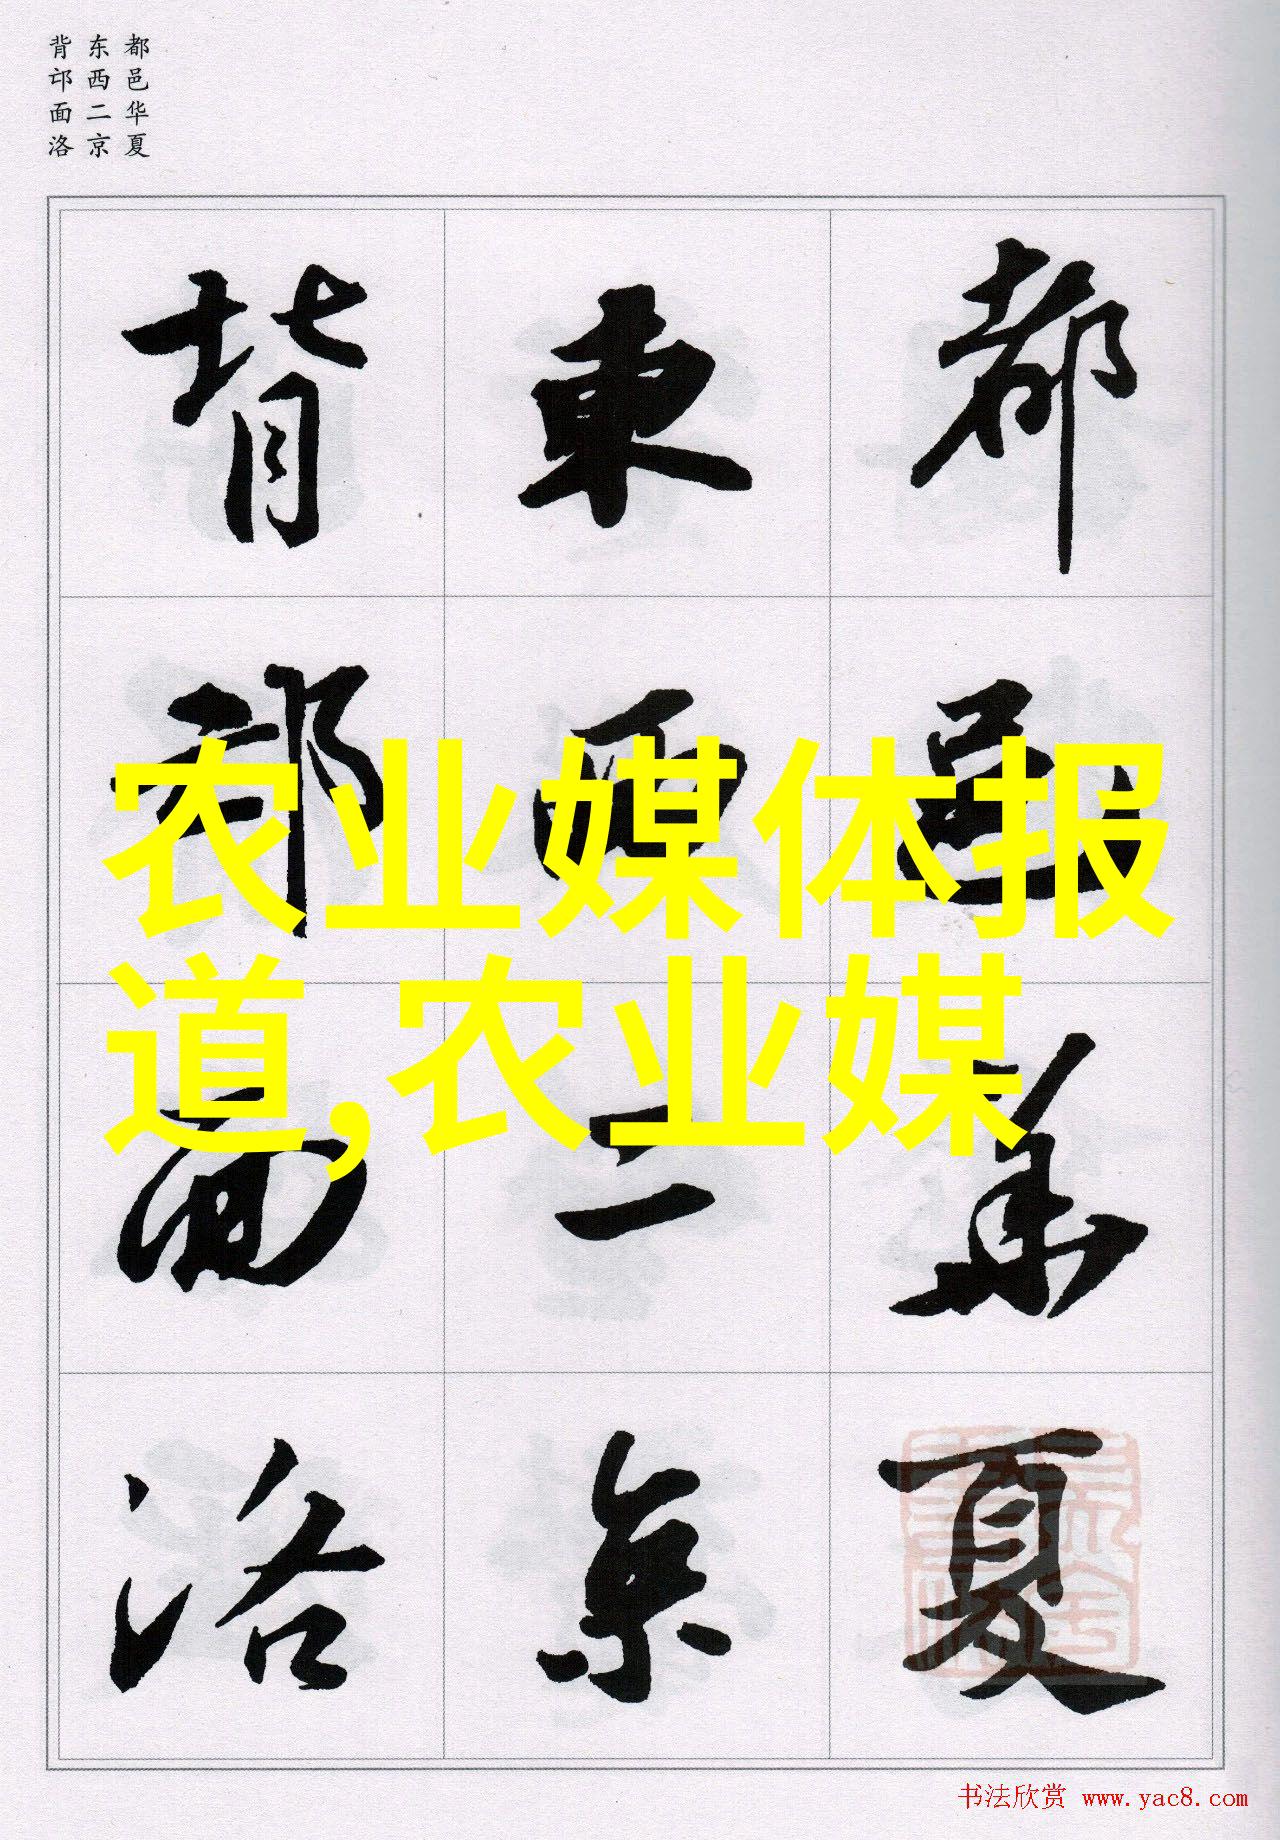 都邑华夏
东西二京
背邙面洛
都邑華夏
東西二京
背邙面洛
农业媒体报
道,农业媒
书法欣赏 www.yac8.com